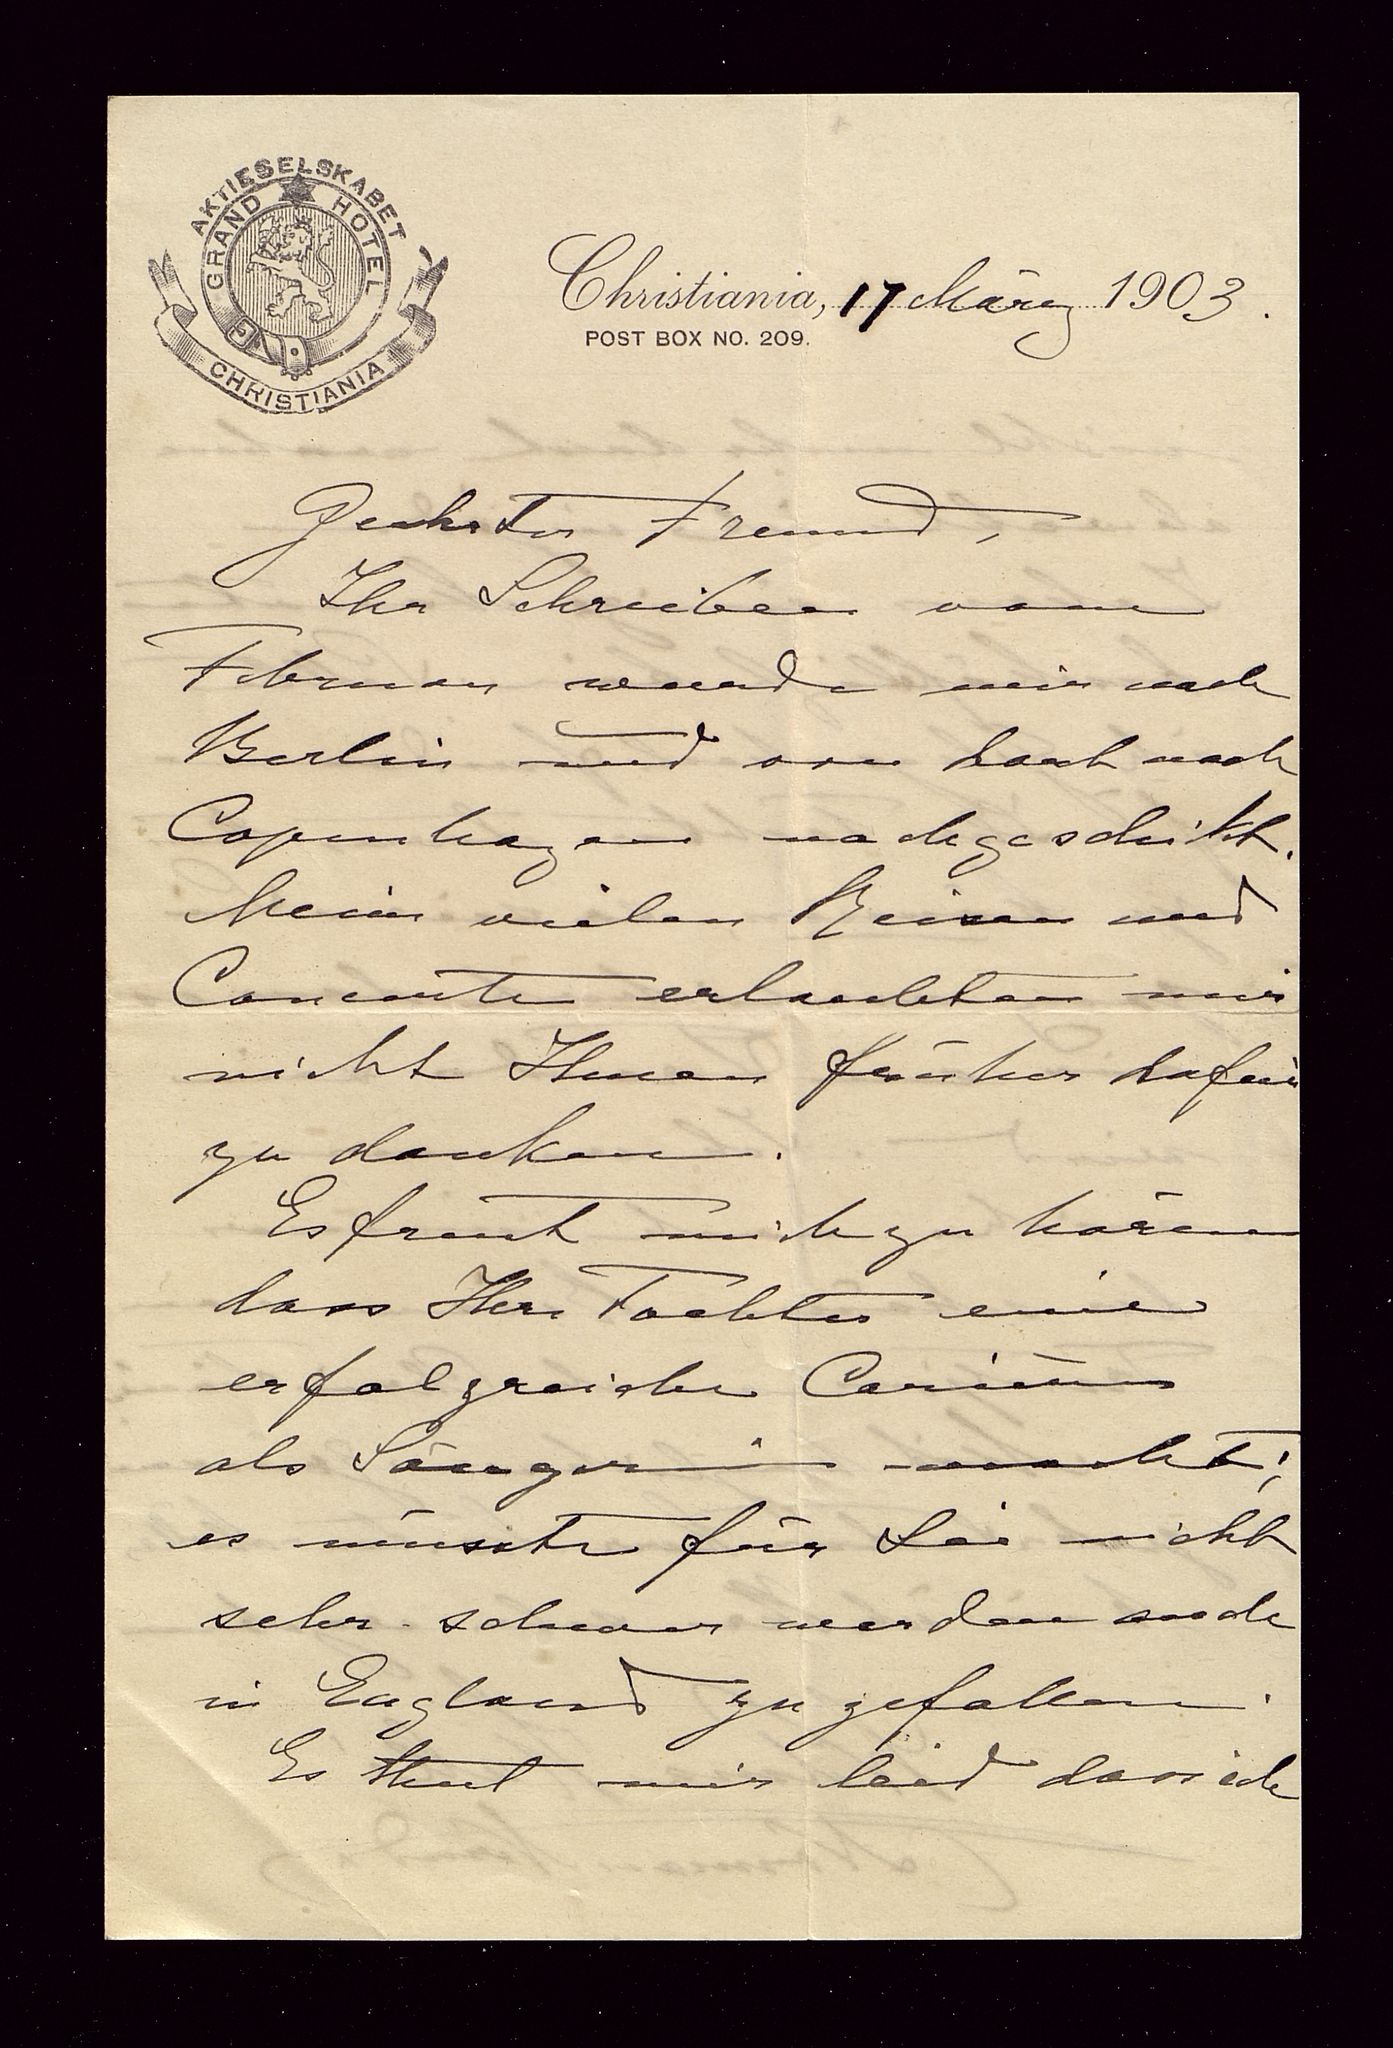 AKTIESELSKABET
GRAND HOTEL
CHRISTIANIA
Christiania, 17 März 1903.
POST BOX NO. 209.
Geehrter Freund,
Ihr Schreiben vom
Februar wurde mir nach
Berlin und von dort nach
Copenhagen nachgeschikt.
Meine vielen Reisen und
Concerte erlaubten mir
nicht Ihnen früher dafür
zu danken.
Es freut mich zu hören
dass Ihre Tochter eine
erfolgreiche Carière
als Sängerin macht;
es müsste für Sie nicht
sehr schwer werden auch
in England zu gefallen.
Es thut mir leid dass ich